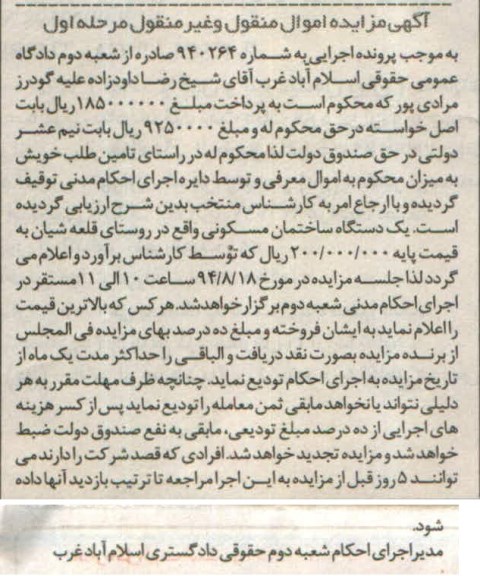 آگهی مزایده اموال منقول وغیر منقول مرحله اول
به موجب پرونده اجرایی به شماره ۹۴۰۲۶۴ صادره از شعبه دوم دادگاه
عمومی حقوقی اسلام آباد غرب آقای شیخ رضا داودزاده علیه گودرز
مرادی پور که محکوم است به پرداخت مبلغ ۱۸۵۰۰۰۰۰۰ ریال بابت
اصل خواسته در حق محکوم له و مبلغ ۹۲۵۰۰۰۰ ریال بابت نیم عشر
دولتی در حق صندوق دولت لذا محکوم له در راستای تامین طلب خویش
به میزان محکوم به اموال معرفی و توسط دایره اجرای احکام مدنی توقیف
گردیده و با ارجاع امر به کارشناس منتخب بدین شرح ارزیابی گردیده
است. یک دستگاه ساختمان مسکونی واقع در روستای قلعه شیان به
قیمت پایه ۲۰۰/۰۰۰/۰۰۰ ریال که توسط کارشناس برآورد و اعلام می
گردد لذا جلسه مزایده در مورخ ۹۴/۸/۱۸ ساعت ۱۰ الی ۱۱ مستقر در
اجرای احکام مدنی شعبه دوم برگزار خواهد شد. هر کس که بالاترین قیمت
را اعلام نماید به ایشان فروخته و مبلغ ده درصد بهای مزایده فی المجلس
از برنده مزایده بصورت نقد دریافت و الباقی را حداکثر مدت یک ماه از
تاریخ مزایده به اجرای احکام تودیع نماید. چنانچه ظرف مهلت مقرر به هر
دلیلی نتواند یا نخواهد مابقی ثمن معامله را تودیع نماید پس از کسر هزینه
های اجرایی از ده درصد مبلغ تودیعی، مابقی به نفع صندوق دولت ضبط
خواهد شد و مزایده تجدید خواهد شد. افرادی که قصد شرکت را دارند می
توانند ۵ روز قبل از مزایده به این اجرا مراجعه تا ترتیب بازدید آنها داده
شود.
مدیر اجرای احکام شعبه دوم حقوقی دادگستری اسلام آباد غرب